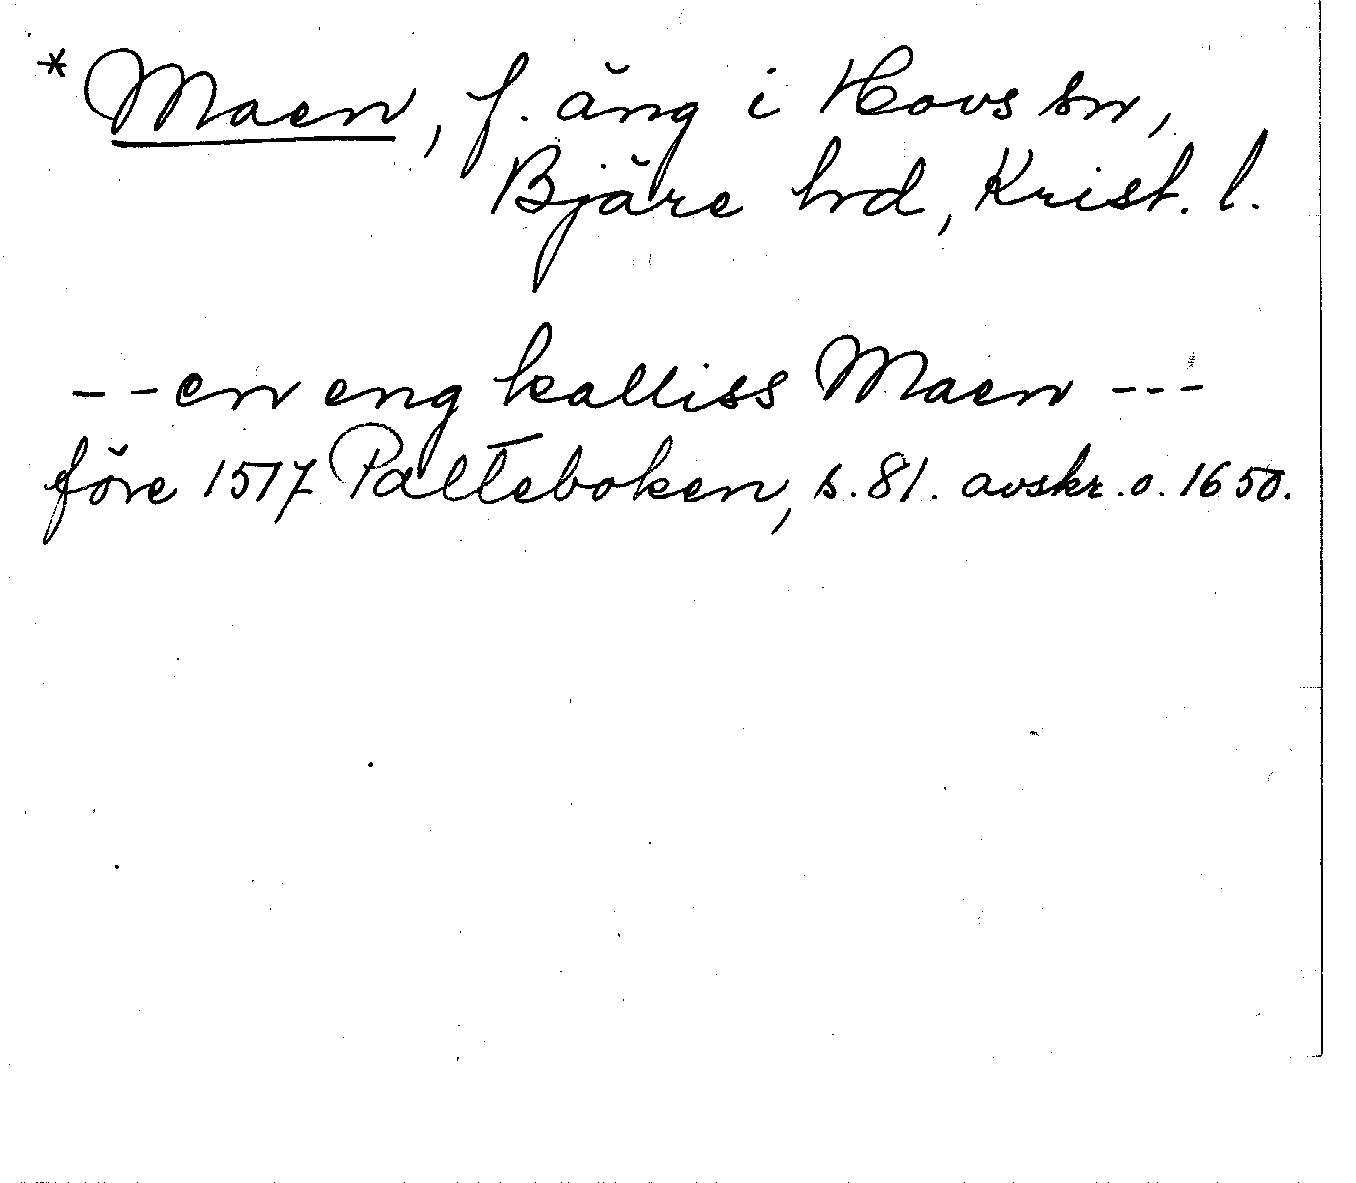 *Maen, f. äng i Hovs sn,
Bjäre hd, Krist. l.
- - en eng kalliss Maen - - -
före 1517 Palteboken, s. 81. avskr. o. 1650.